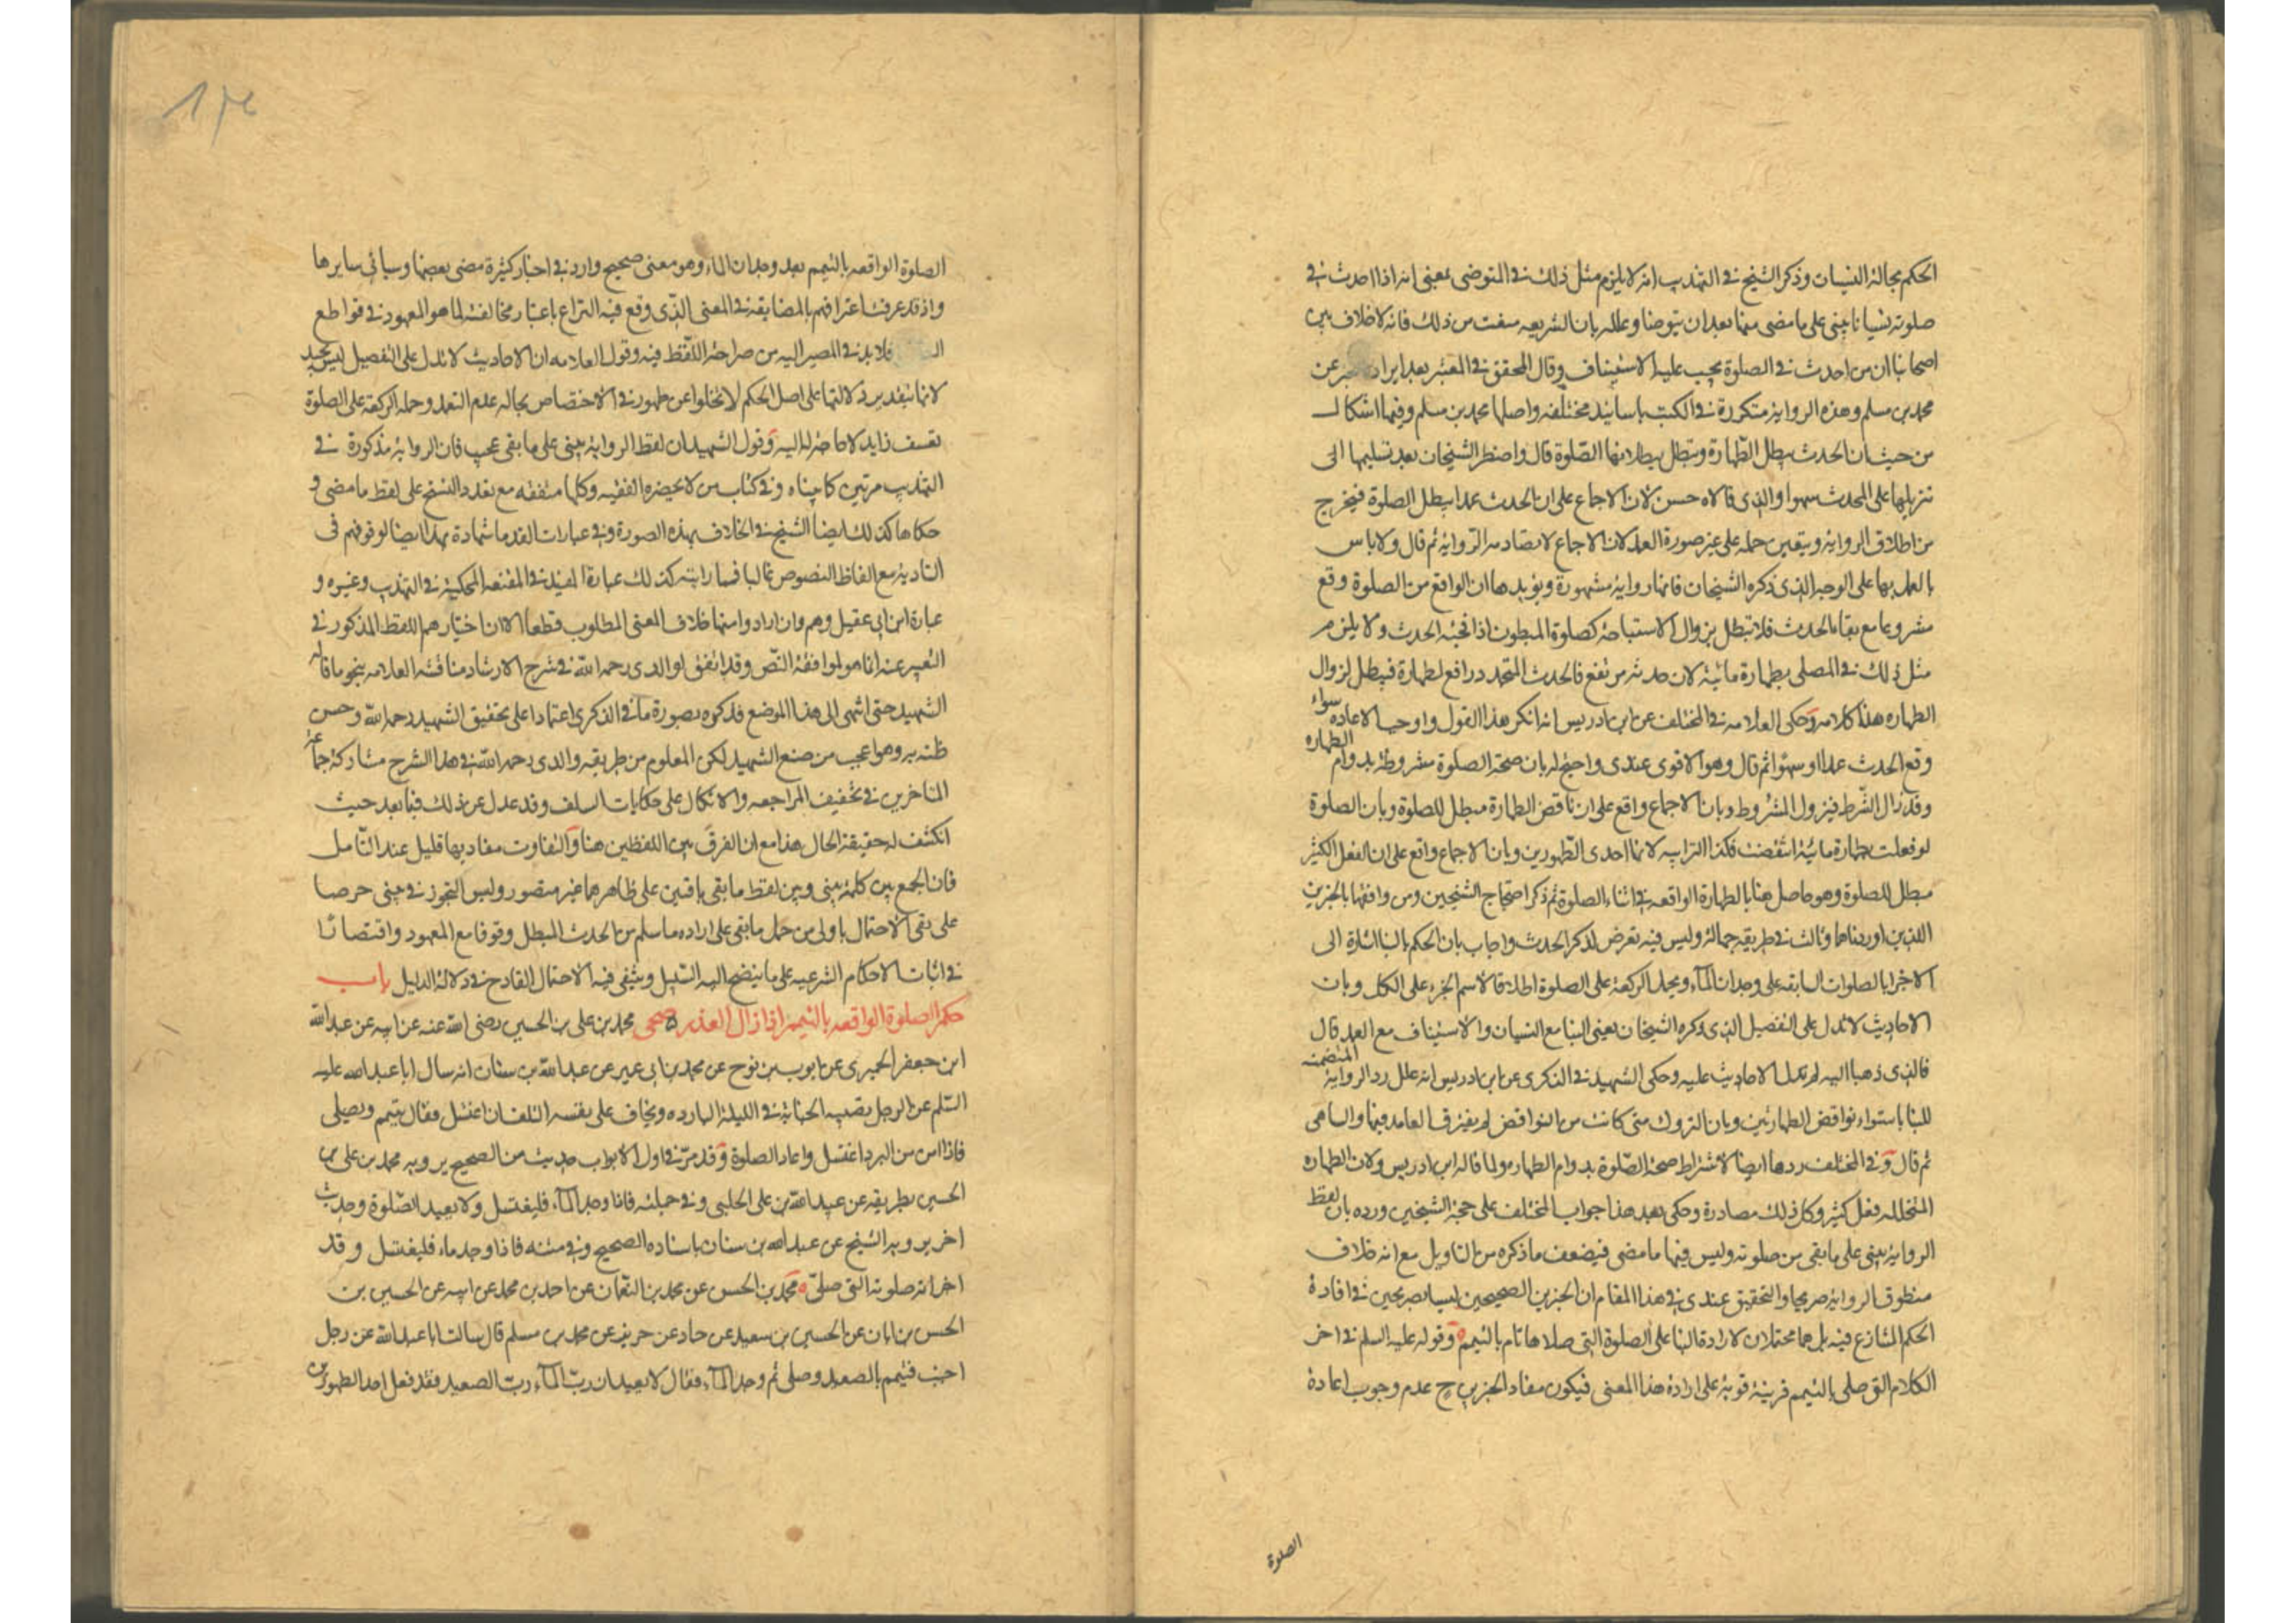 الحكم بحالة النسيان وذكر الشيخ في التهذيب انه لا يلزم مثل ذلك في المتوضى بمعنى انه اذا احدث في
صلوته نسيانا يبنى على ما مضى منها بعد ان يتوضا وعلله بان الشريعه منعت من ذلك فانه لا خلاف بين
اصحابنا ان من احدث في الصلوة يجب عليه الاستيناف وقال المحقق في المعتبر بعد ايراد عن
محمد بن مسلم وهذه الرواية متكررة في الكتب باسانيد مختلفه واصلها محمد بن مسلم وفيها اشكال
من حيث ان الحدث يبطل الطهارة وتبطل ببطلانها الصلوة قال واضطر الشيخان بعد تسليمها الى
تنزيلها على المحدث سهوا والذى قالاه حسن لان الاجماع على ان الحدث عمدا يبطل الصلوة فيخرج
من اطلاق الرواية ويتعين حمله على غير صورة العمد لان الاجماع لا تصادمه الرواية ثم قال ولا باس
بالعمل بها على الوجه الذى ذكره الشيخان فانها رواية مشهورة ويؤيدها ان الواقع من الصلوة وقع
مشروعا مع بقاء الحدث فلا تبطل بزوال الاستباحة كصلوة المبطون اذا فجئه الحدث ولا يلزم
مثل ذلك في المصلى بطهارة مائية لان حدثه مرتفع فالحدث المتجدد رافع لطهارة فيبطل لزوال
الطهاره هذا كلامه وحكى العلامه في المختلف عن ابن ادريس انه انكر هذا القول واوجب الاعاده سواء
وقع الحدث عمدا او سهوا ثم قال وهو الاقوى عندى واحتج له بان صحة الصلوة مشروطة بدوام الطهاره
وقد زال الشرط فيزول المشروط وبان الاجماع واقع على ان ناقض الطهارة مبطل للصلوة وبان الصلوة
لو فعلت بطهارة مائية انتقضت فكذا الترابيه لانها احدى الطهورين وبان الاجماع واقع على ان الفعل الكثير
مبطل للصلوة وهو حاصل هنا بالطهارة الواقعه في اثناء الصلوة ثم ذكر احتجاج الشيخين ومن وافقهما بالخبرين
اللذين اوردناهما وثالث في طريقه جهالة وليس فيه تعرض لذكر الحدث واجاب بان الحكم بالبنا اشارة الى
الاجزا بالصلوات السابقه على وجدان الماء ويحمل الركعة على الصلوة اطلاقا لاسم الجزء على الكل وبان
الاحاديث لا تدل على التفصيل الذى ذكره الشيخان يعنى البنا مع النسيان والاستيناف مع العمد قال
فالذى ذهبا اليه لم تدل الاحاديث عليه وحكى الشهيد في الذكرى عن ابن ادريس انه علل رد الرواية المتضمنه
للبنا باستواء نواقض الطهارتين وبان التروك متى كانت من النواقض لم يفترق العامد فيها والساهى
ثم قال وفي المختلف ردها ايضا لاشتراط صحة الصلوة بدوام الطهاره ولما قاله ابن ادريس ولان الطهاره
المتخلله فعل كثير وكل ذلك مصادرة وحكى بعد هذا جواب المختلف على حجة الشيخين ورده بان لفظ
الرواية يبنى على ما بقى من صلوته وليس فيها ما مضى فيضعف ما ذكره من التاويل مع انه خلاف
منطوق الرواية صريحا والتحقيق عندى في هذا المقام ان الخبرين الصحيحين ليسا بصريحين في افادة
الحكم المتنازع فيه بل هما محتملان لارادة البنا على الصلوة التى صلاها تام بالتيمم وقوله عليه السلم في اخر
الكلام التي صلى بالتيمم قرينة قوية على ارادة هذا المعنى فيكون مفاد الخبرين ح عدم وجوب اعادة
الصلوة
الصلوة الواقعه بالتيمم بعد وجدان الماء وهو معنى صحيح وارد في اخبار كثيرة مضى بعضها وسياتى سايرها
واذ قد عرفت اعترافهم بالمضايقه في المعنى الذى وقع فيه النزاع باعتبار مخالفته لما هو المعهود في قواطع
فلا بد في المصير اليه من صراحة اللفظ فيه وقول العلامه ان الاحاديث لا تدل على التفصيل ليس بجيد
لانها بتقدير دلالتها على اصل الحكم لا تخلوا عن ظهور في الاختصاص بحاله عدم التعمد وحمله الركعة على الصلوة
تعسف زايد لا حاجة له اليه وقول الشهيد ان لفظ الرواية يبنى على ما بقى عجيب فان الرواية مذكورة في
التهذيب مرتين كما بيناه وفي كتاب من لا يحضره الفقيه وكلها متفقه مع تعدد النسخ على لفظ ما مضى و
حكاها كذلك ايضا الشيخ في الخلاف بهذه الصورة وفي عبارات القدما شهادة بهذا ايضا لوقوفهم في
التاديه مع الفاظ النصوص غالبا فما رايته كذلك عبارة المفيد في المقنعه المحكية في التهذيب وغيره و
عبارة ابن ابى عقيل وهم وان ارادوا منها خلاف المعنى المطلوب قطعا الا ان اختيارهم اللفظ المذكور في
التعبير عنه انما هو لموافقة النص وقد اتفق لوالدى رحمه الله في شرح الارشاد مناقشة العلامه بنحو ما قاله
الشهيد حتى انتهى الى هذا الموضع فذكره بصورة ما في الذكرى اعتمادا على تحقيق الشهيد رحمه الله وحسن
ظنه به وهو اعجب من صنع الشهيد لكن المعلوم من طريقه والدى رحمه الله في هذا الشرح مشاركة جماعة
المتاخرين في تخفيف المراجعه والاتكال على حكايات السلف وقد عدل عن ذلك فيما بعد حيث
انكشف له حقيقة الحال هذا مع ان الفرق بين اللفظين هنا والتفاوت مفاديهما قليل عند التامل
فان الجمع بين كلمة يبنى وبين لفظ ما بقى باقيين على ظاهرهما غير متصور وليس التجوز في يبنى حرصا
على بقى الاحتمال باولى من حمل ما بقى على اراده ما سلم من الحدث المبطل وقوفا مع المعهود واقتصارا
في اثبات الاحكام الشرعيه على ما يتضح اليه السبيل وينتفى فيه الاحتمال القادح في دلالة الدليل باب
حكم الصلوة الواقعه بالتيمم اذا زال العذر صحى محمد بن على بن الحسين رضى الله عنه عن ابيه عن عبد الله
ابن جعفر الحميرى عن ايوب بن نوح عن محمد بن ابى عمير عن عبد الله بن سنان انه سال ابا عبد الله عليه
السلم عن الرجل تصيبه الجنابة في الليلة الباردة ويخاف على نفسه التلف ان اغتسل فقال يتيمم ويصلى
فاذا امن من البرد اغتسل واعاد الصلوة وقد مر في اول الابواب حديث من الصحيح يرويه محمد بن على بن
الحسين بطريقه عن عبيد الله بن على الحلبى وفي جملته فاذا وجد الماء فليغتسل ولا يعيد الصلوة وحديث
اخر يرويه الشيخ عن عبد الله بن سنان باسناده الصحيح وفي متنه فاذا وجد ماء فليغتسل وقد
اجزاته صلوته التى صلى محمد بن الحسن عن محمد بن النعمان عن احمد بن محمد عن ابيه عن الحسين بن
الحسن بن ابان عن الحسين بن سعيد عن حماد عن حريز عن محمد بن مسلم قال سالت ابا عبد الله عن رجل
اجنب فتيمم بالصعيد وصلى ثم وجد الماء فقال لا يعيد ان رب الماء رب الصعيد فقد فعل احد الطهورين